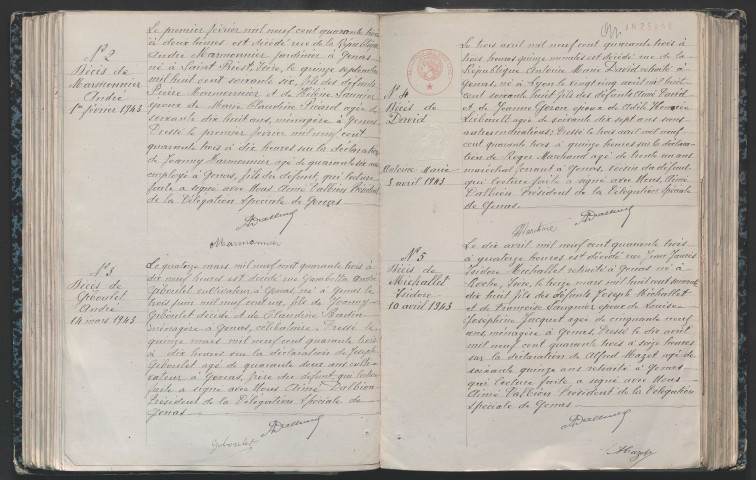 N° 2
Décès de
Marmonnier
André
1er février 1943
Le premier février mil neuf cent quarante trois
à deux heures est décédé rue de la République
André Marmonnier jardinier à Genas
né à Saint Priest, Isère, le quinze septembre
mil huit cent soixante six, fils des défunts
Pierre Marmonnier et de
époux de Marie Claudine Picard âgée de
soixante dix huit ans, ménagère à Genas
Dressé le premier février mil neuf cent
quarante trois à dix heures sur la déclaration
de Joanny Marmonnier âgé de quarante six ans
employé à Genas, fils du défunt, qui lecture
faite a signé avec Nous Aimé Dalbion Président
de la Délégation Spéciale de Genas
Marmonnier
N° 3
Décès de
Giboulet
André
14 mars 1943
Le quatorze mars mil neuf cent quarante trois à
dix neuf heures est décédé rue Gambetta André
Giboulet cultivateur à Genas né à Genas le
trois juin mil neuf cent un, fils de Joanny
Giboulet décédé et de Claudine Badin
ménagère à Genas, célibataire. Dressé le
quinze mars mil neuf cent quarante trois
à dix heures sur la déclaration de Joseph
Giboulet âgé de quarante deux ans culti-
vateur à Genas, frère du défunt qui lecture
faite a signé avec Nous Aimé Dalbion
Président de la Délégation Spéciale de
Genas
Giboulet
N° 4
Décès de
David
Antoine Marie
3 avril 1943
Le trois avril mil neuf cent quarante trois à
trois heures quinze minutes est décédé rue de la
République Antoine Marie David retraité à
Genas, né à Lyon le vingt cinq août mil huit
cent soixante huit fils des défunts Aimé David
et de Jeanne époux de
âgée de soixante dix sept ans sans
autres indications. Dressé le trois avril mil neuf
cent quarante trois à quinze heures sur la déclara-
tion de Roger Marchand âgé de trente un ans
maréchal ferrant à Genas, voisin du défunt
qui lecture faite a signé avec Nous, Aimé
Dalbion Président de la Délégation Spéciale
de Genas
N° 5
Décès de
Michallet
Isidore
10 avril 1943
Le dix avril mil neuf cent quarante trois
à quatorze heures est décédé rue Jean Jaurès
Isidore Michallet retraité à Genas né à
Roche, Isère, le treize mars mil huit cent soixante
dix huit fils des défunts Joseph Michallet
et de Françoise Laugnier époux de Louise
Joséphine Jacquet âgée de cinquante neuf
ans, ménagère à Genas. Dressé le dix avril
mil neuf cent quarante trois à seize heures
sur la déclaration de Alfred Mazet âgé de
soixante quinze ans retraité à Genas
qui lecture faite a signé avec Nous
Aimé Dalbion Président de la Délégation
Spéciale de Genas